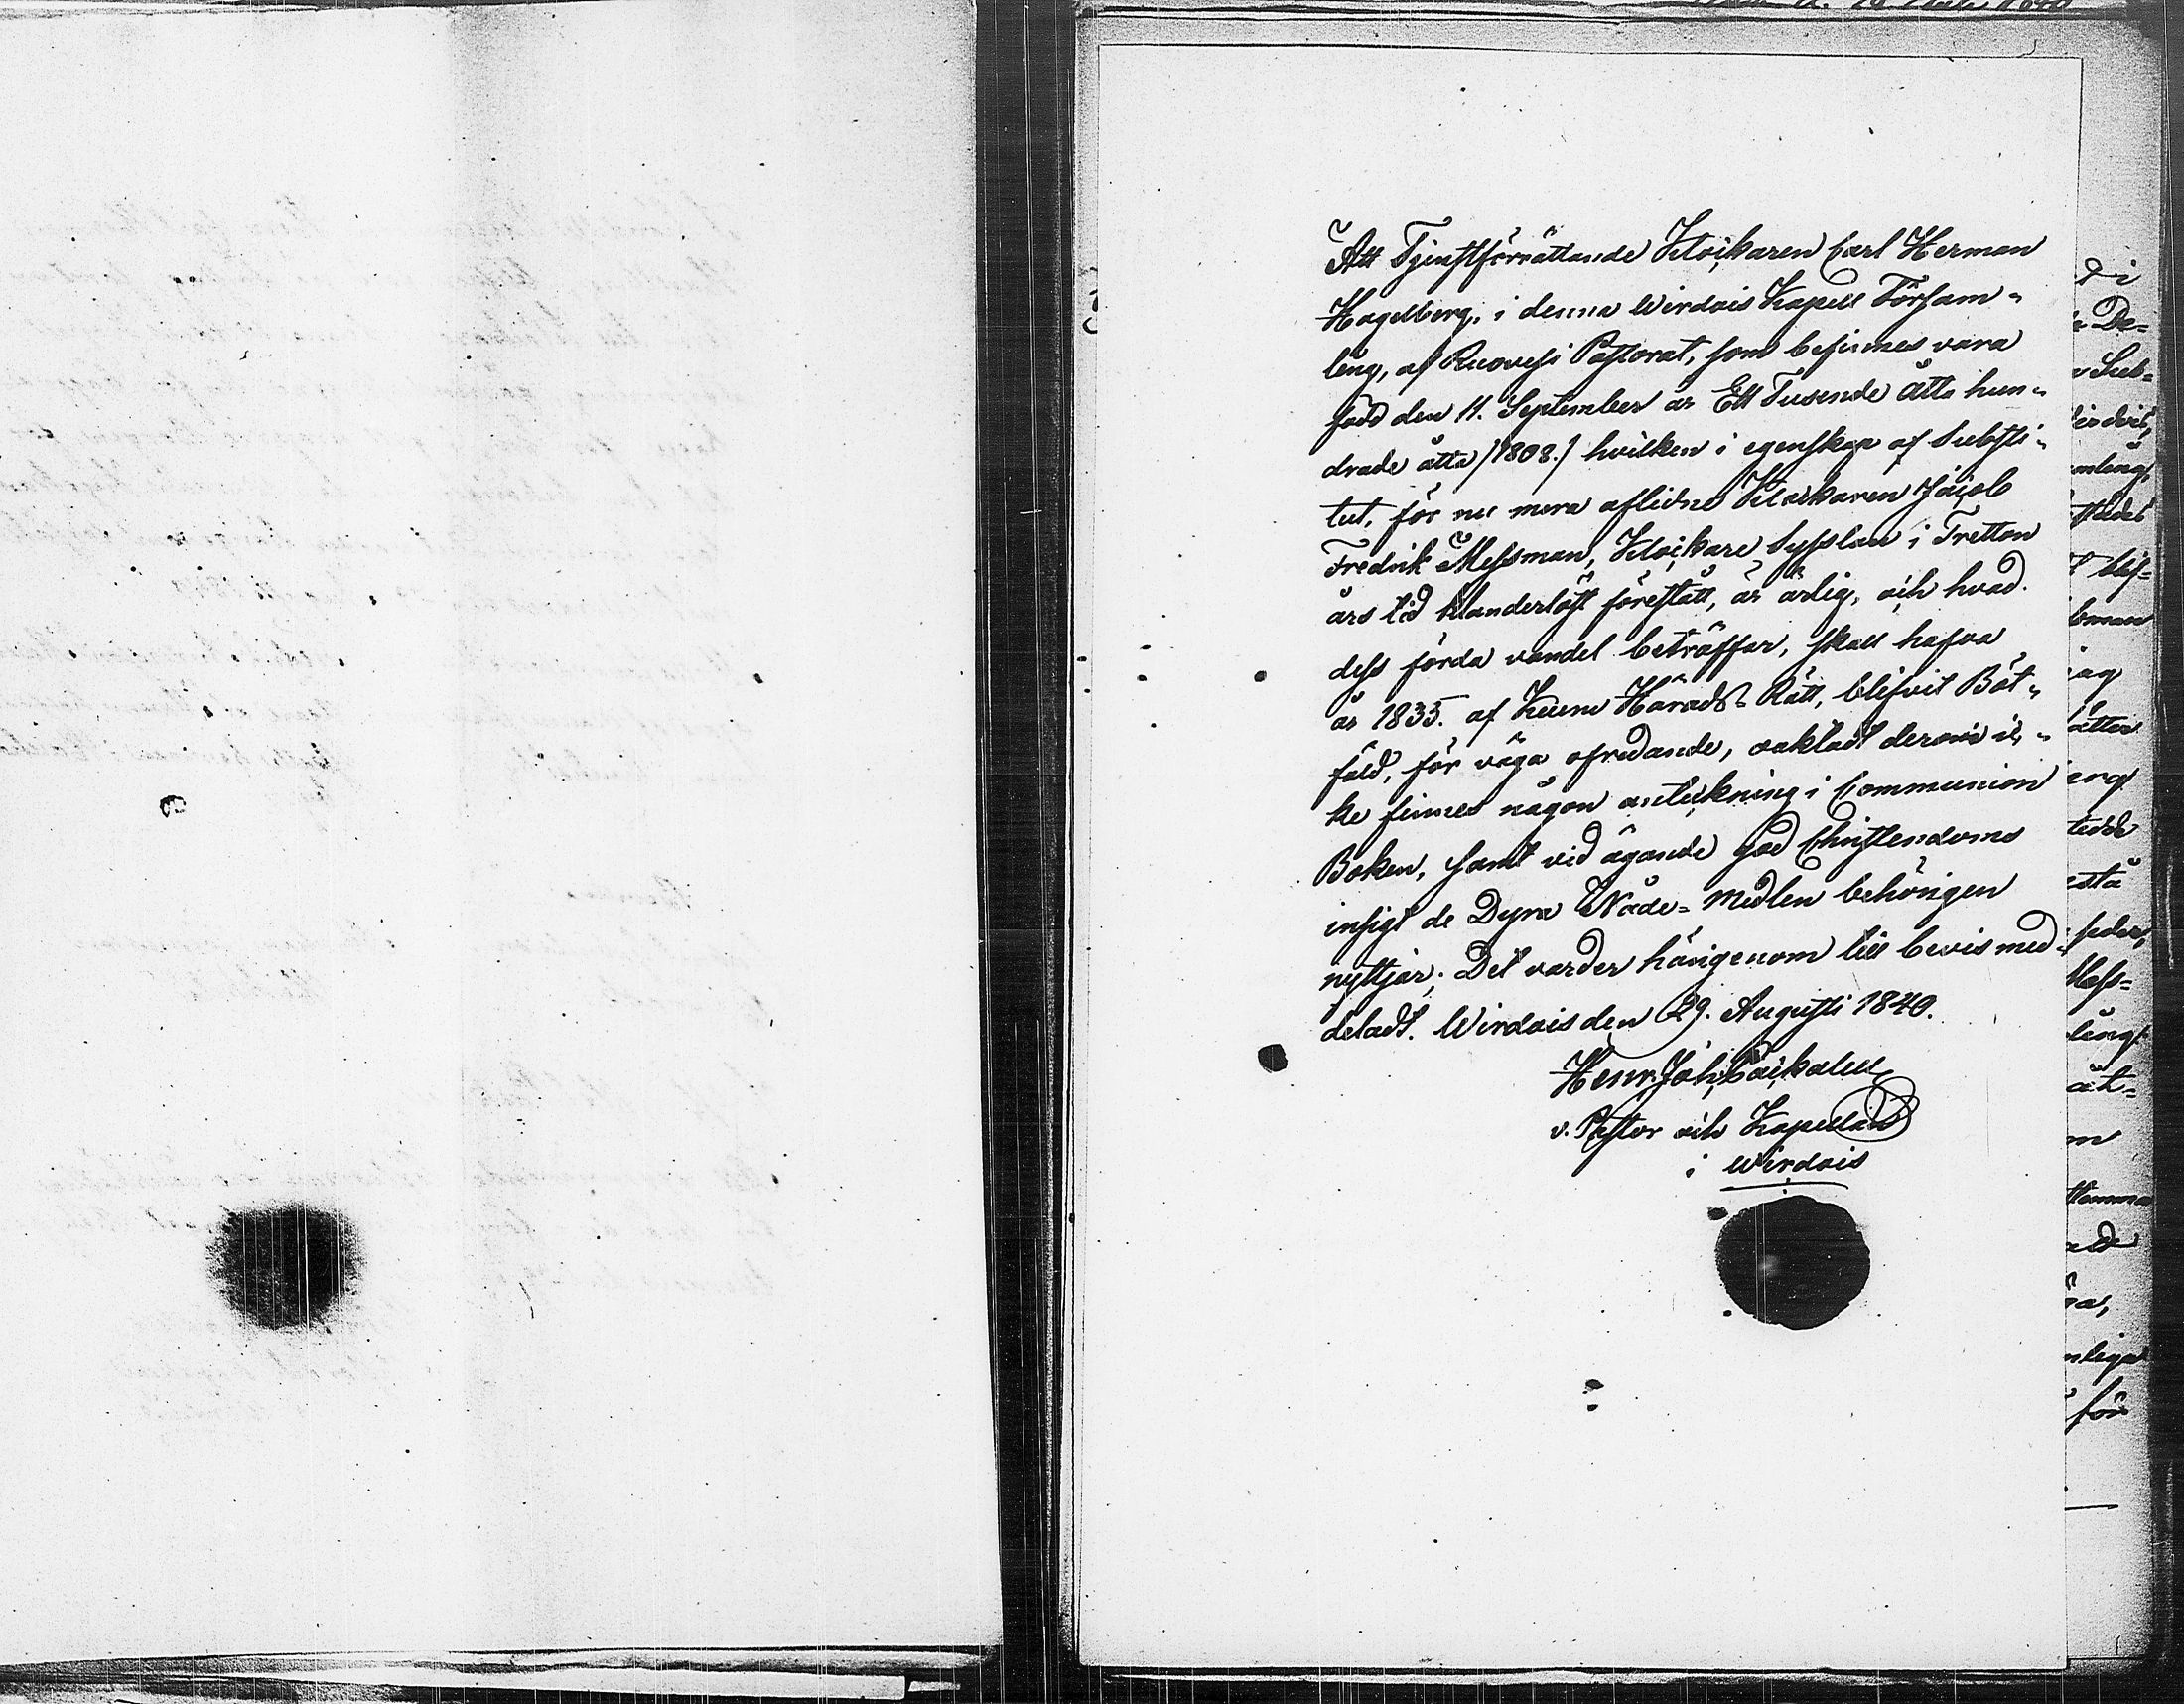 Att Tjenstförrättande Klockaren Carl Herman
Hagelberg, i denna Wirdois Kapell Försam¬
ling, af Ruovesi Pastorat, som befinnes vara
född den 11. September år Ett Tusende åtta hun¬
drade åtta /1808./ hvilken i egenskap af Substi¬
tut, för nu mera aflidne Klockaren Jacob
Fredrik Messman, Klockare Sysslan i Tretton
års tid klanderlöst förestått, är ärlig, och hvad
dess förda vandel beträffar, skall hafva
år 1835. af Kuru Härads-Rätt, blifvit Böt¬
fäld, för våga ofredande, oaktadt derom ic¬
ke finnes någon anteckning i Communion
Boken, samt vid ägande god Christendoms
insigt de Dyra Nåde-Medlen behörigen
nyttjar; Det varder härigenom till bevis med¬
deladt. Wirdois den 29. Augusti 1840.
Henr. Joh.
v. Pastor och Kapellan
i Wirdois